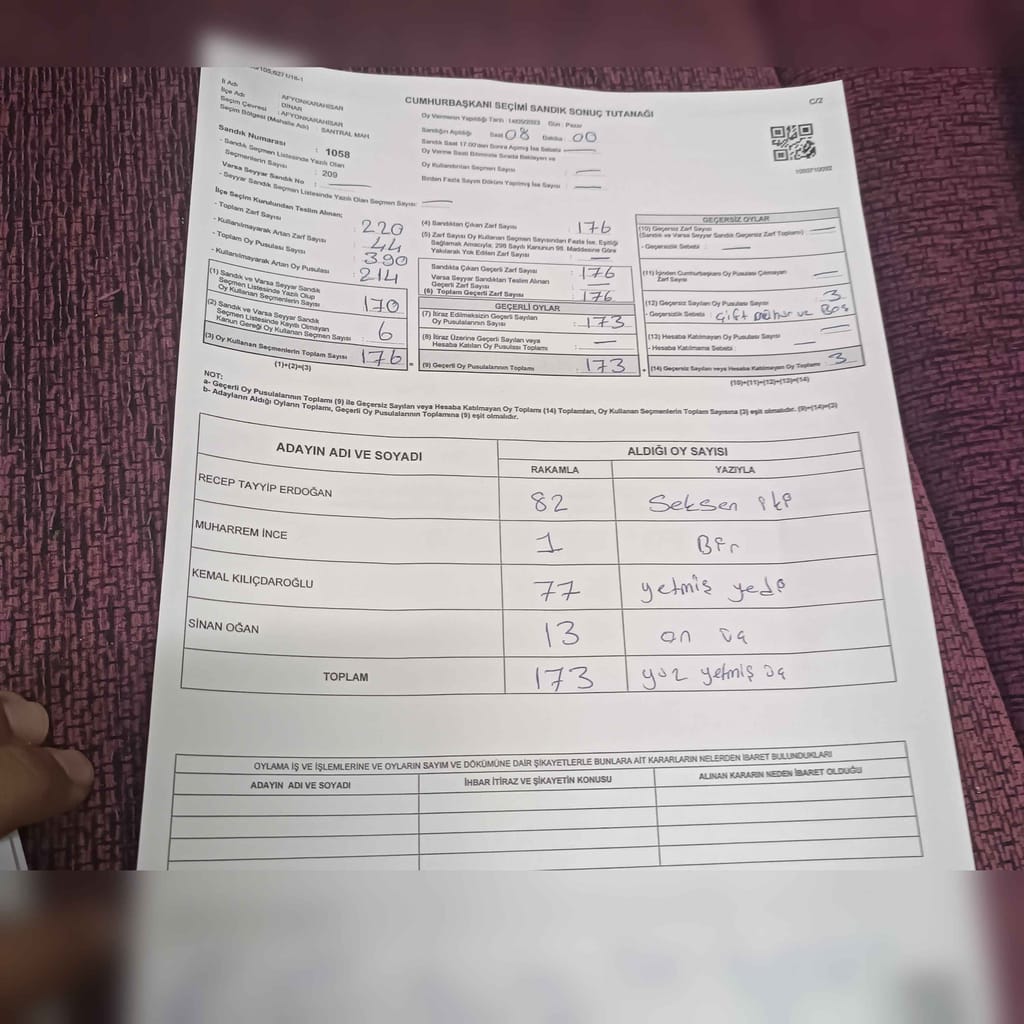 C/2
CUMHURBAŞKANI SEÇİMİ SANDIK SONUÇ TUTANAĞI
İl Adı : AFYONKARAHİSAR
İlçe Adı : DİNAR
Seçim Çevresi : AFYONKARAHİSAR
Seçim Bölgesi (Mahalle Adı) : SANTRAL MAH
Sandık Numarası : 1058
- Sandık Seçmen Listesinde Yazılı Olan
Seçmenlerin Sayısı : 209
Varsa Seyyar Sandık No :
- Seyyar Sandık Seçmen Listesinde Yazılı Olan Seçmen Sayısı:
Oy Vermenin Yapıldığı Tarih : 14/05/2023 Gün : Pazar
Sandığın Açıldığı Saat 08 Dakika : 00
Sandık Saat 17.00'den Sonra Açılmış İse Sebebi
Oy Verme Saati Bitiminde Sırada Bekleyen ve
Oy Kullandırılan Seçmen Sayısı
Birden Fazla Sayım Döküm Yapılmış İse Sayısı
İlçe Seçim Kurulundan Teslim Alınan;
- Toplam Zarf Sayısı : 220
- Kullanılmayarak Artan Zarf Sayısı : 44
- Toplam Oy Pusulası Sayısı : 390
- Kullanılmayarak Artan Oy Pusulası : 214
(1) Sandık ve Varsa Seyyar Sandık
Seçmen Listesinde Yazılı Olup
Oy Kullanan Seçmenlerin Sayısı : 170
(2) Sandık ve Varsa Seyyar Sandık
Seçmen Listesinde Kayıtlı Olmayan
Kanun Gereği Oy Kullanan Seçmen Sayısı : 6
(3) Oy Kullanan Seçmenlerin Toplam Sayısı : 176
(1)+(2)=(3)
(4) Sandıktan Çıkan Zarf Sayısı : 176
(5) Zarf Sayısı Oy Kullanan Seçmen Sayısından Fazla İse, Eşitliği
Sağlamak Amacıyla, 298 Sayılı Kanunun 98. Maddesine Göre
Yakılarak Yok Edilen Zarf Sayısı :
Sandıkta Çıkan Geçerli Zarf Sayısı : 176
Varsa Seyyar Sandıktan Teslim Alınan
Geçerli Zarf Sayısı :
(6) Toplam Geçerli Zarf Sayısı : 176
GEÇERLİ OYLAR
(7) İtiraz Edilmeksizin Geçerli Sayılan
Oy Pusulalarının Sayısı : 173
(8) İtiraz Üzerine Geçerli Sayılan veya
Hesaba Katılan Oy Pusulası Toplamı :
(9) Geçerli Oy Pusulalarının Toplamı : 173
GEÇERSİZ OYLAR
(10) Geçersiz Zarf Sayısı
(Sandık ve Varsa Seyyar Sandık Geçersiz Zarf Toplamı) :
- Geçersizlik Sebebi :
(11) İçinden Cumhurbaşkanı Oy Pusulası Çıkmayan
Zarf Sayısı
(12) Geçersiz Sayılan Oy Pusulası Sayısı : 3
- Geçersizlik Sebebi : Çift mühür ve Boş
(13) Hesaba Katılmayan Oy Pusulası Sayısı :
- Hesaba Katılmama Sebebi :
(14) Geçersiz Sayılan veya Hesaba Katılmayan Oy Toplamı : 3
(10)+(11)+(12)+(13)=(14)
NOT:
a- Geçerli Oy Pusulalarının Toplamı (9) ile Geçersiz Sayılan veya Hesaba Katılmayan Oy Toplamı (14) Toplamları, Oy Kullanan Seçmenlerin Toplam Sayısına (3) eşit olmalıdır. (9)+(14)=(3)
b- Adayların Aldığı Oyların Toplamı, Geçerli Oy Pusulalarının Toplamına (9) eşit olmalıdır.
ADAYIN ADI VE SOYADI ALDIĞI OY SAYISI
RAKAMLA YAZIYLA
RECEP TAYYİP ERDOĞAN 82 Seksen iki
MUHARREM İNCE 1 Bir
KEMAL KILIÇDAROĞLU 77 yetmiş yedi
SİNAN OĞAN 13 on üç
TOPLAM 173 yüz yetmiş üç
OYLAMA İŞ VE İŞLEMLERİNE VE OYLARIN SAYIM VE DÖKÜMÜNE DAİR ŞİKAYETLERLE BUNLARA AİT KARARLARIN NELERDEN İBARET BULUNDUKLARI
ADAYIN ADI VE SOYADI İHBAR İTİRAZ VE ŞİKAYETİN KONUSU ALINAN KARARIN NEDEN İBARET OLDUĞU